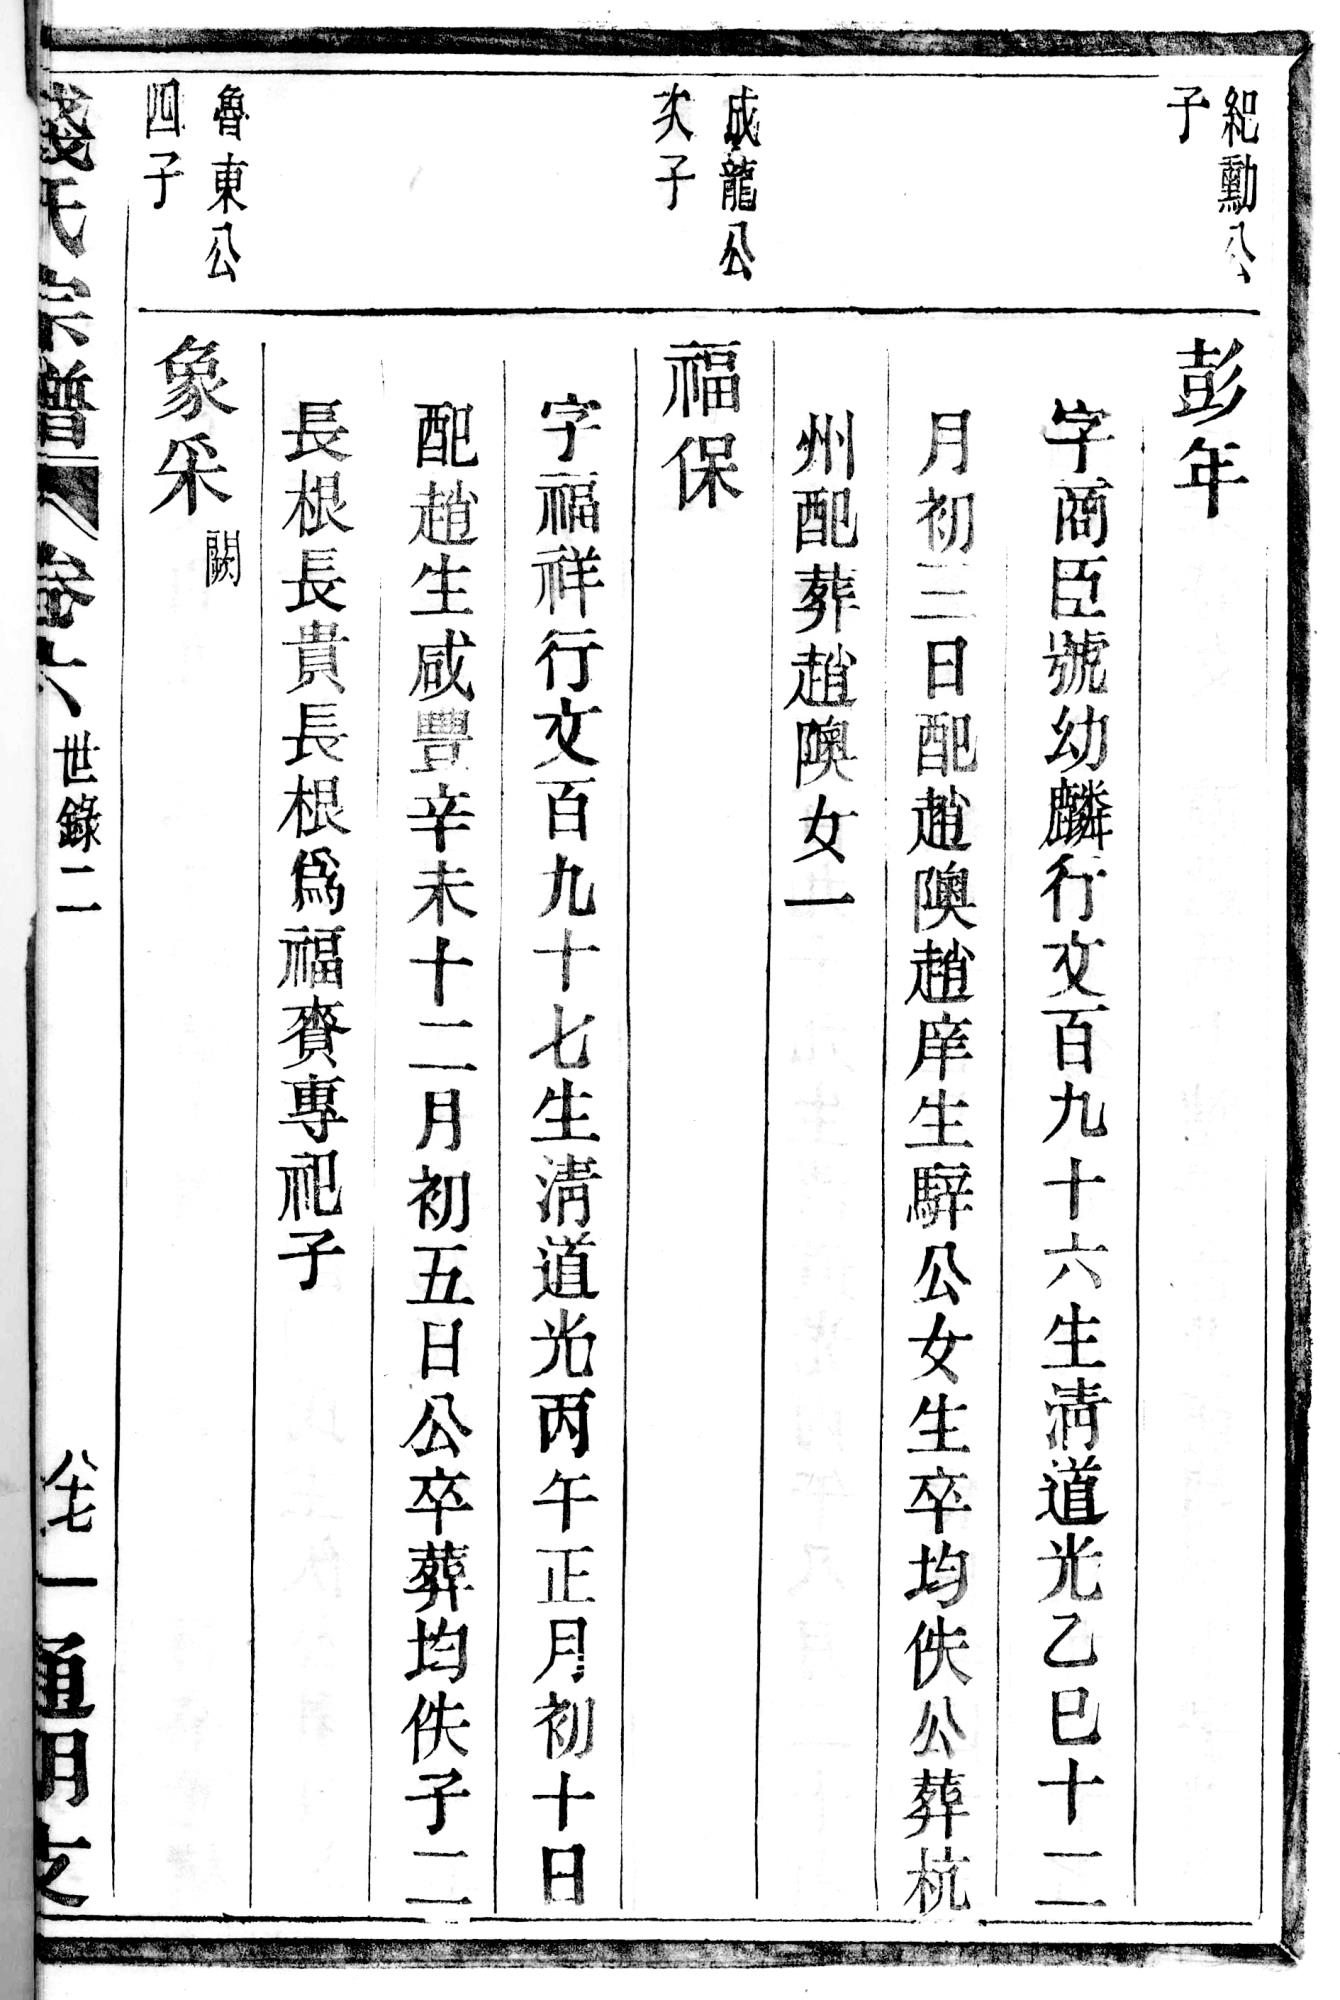 紀勳公
子
彭年
字商臣號幼麟行文百九十六生淸道光乙巳十二
月初三日配趙隩趙庠生騂公女生卒均佚公葬杭
州配葬趙隩女一
成龍公
次子
福保
字福祥行文百九十七生淸道光丙午正月初十日
配趙生咸豐辛未十二月初五日公卒葬均佚子二
長根長貴長根爲福賚專祀子
魯東公
四子
象采闕
錢氏宗譜
卷六
世錄二
八十七
通明支